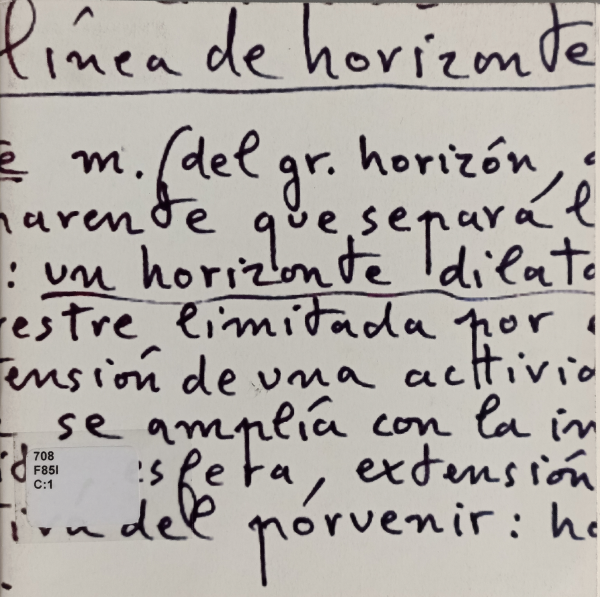 línea de horizonte
e m. (del gr. horizón,
arente que separá l
: un horizonte dilata
restre limitada por
ensión de una acttivid
se amplía con la in
708
F85l
C:1
esfera, extensión
del pórvenir: ho